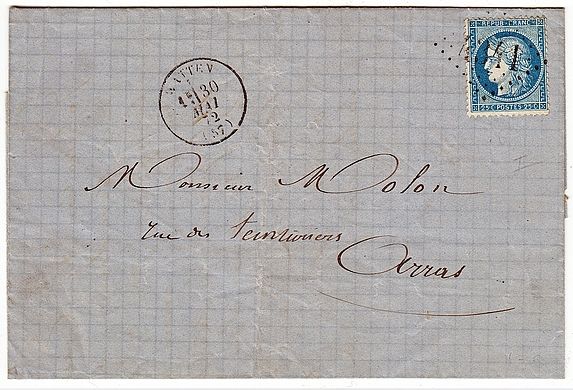 REPUB. FRANC.
25 C POSTES 25 C
WATTEN
30
MAI
72
(57)
Monsieur Molon
rue des Teinturiers
Arras